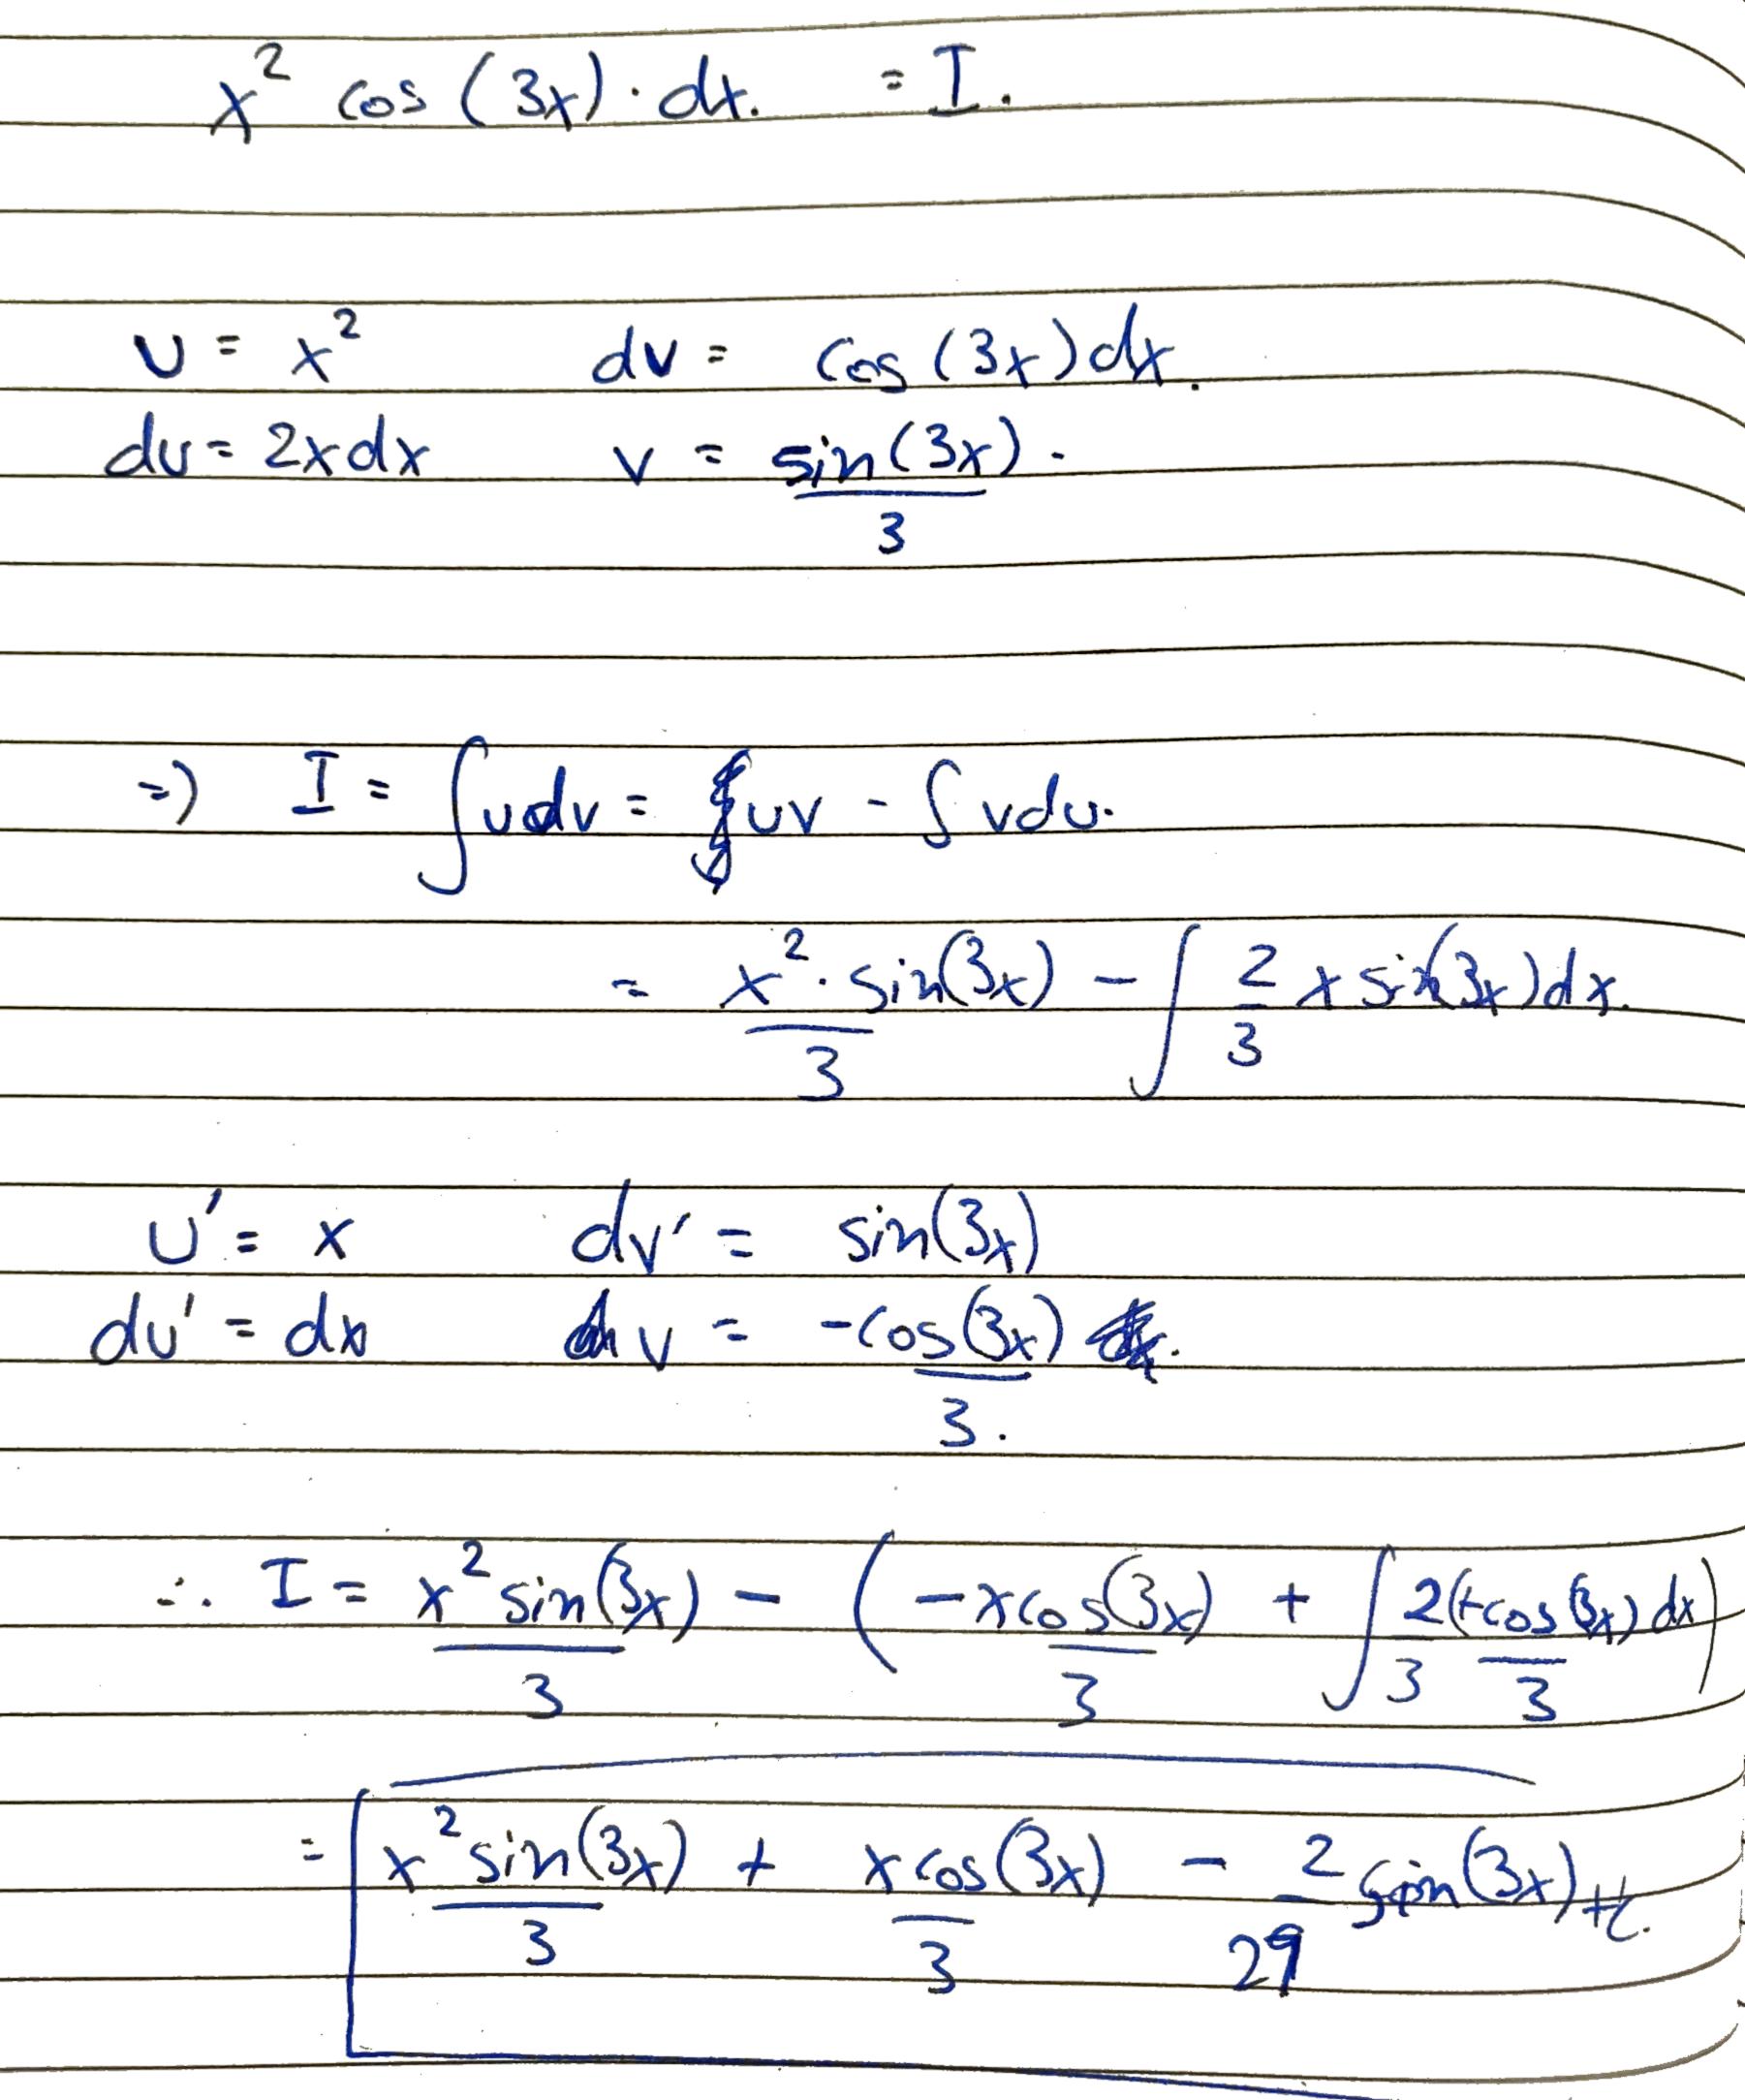 x² cos (3x) · dx. = I.
u = x² dv = cos (3x) dx.
du = 2x dx v = sin (3x) / 3 .
=) I = ∫ u dv = uv - ∫ v du.
= x² · sin(3x) / 3 - ∫ 2/3 x sin(3x) dx.
u' = x dv' = sin(3x)
du' = dx v = -cos(3x) / 3 .
∴ I = x² sin(3x) / 3 - ( -x cos(3x) / 3 + ∫ 2/3 (+cos(3x) / 3) dx )
= x² sin(3x) / 3 + x cos(3x) / 3 - 2/29 sin(3x) + c.